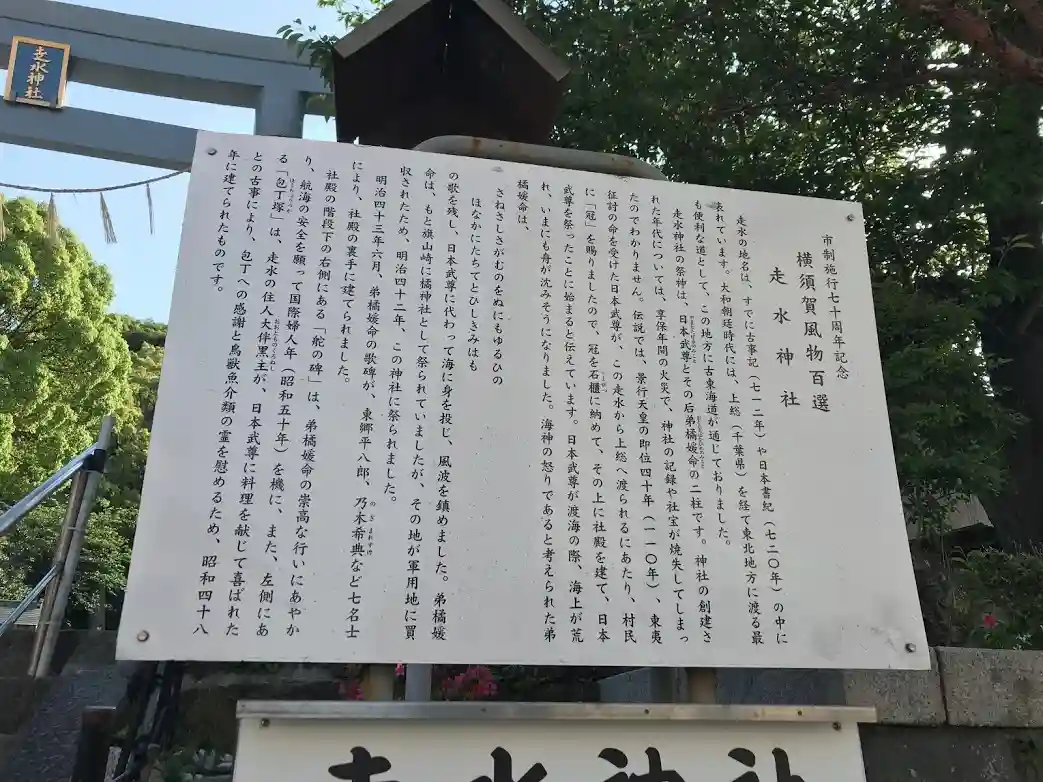 走水神社
市制施行七十周年記念
横須賀風物百選
走水神社
走水の地名は、すでに古事記（七一二年）や日本書紀（七二〇年）の中に
表れています。大和朝廷時代には、上総（千葉県）を経て東北地方に渡る最
も便利な道として、この地方に古東海道が通じておりました。
走水神社の祭神は、日本武尊とその后弟橘媛命の二柱です。神社の創建さ
れた年代については、享保年間の火災で、神社の記録や社宝が焼失してしまっ
たのでわかりません。伝説では、景行天皇の即位四十年（一一〇年）、東夷
征討の命を受けた日本武尊が、この走水から上総へ渡られるにあたり、村民
に「冠」を賜りましたので、冠を石櫃に納めて、その上に社殿を建て、日本
武尊を祭ったことに始まると伝えています。日本武尊が渡海の際、海上が荒
れ、いまにも舟が沈みそうになりました。海神の怒りであると考えられた弟
橘媛命は、
さねさしさがむのをぬにもゆるひの
ほなかにたちてとひしきみはも
の歌を残し、日本武尊に代わって海に身を投じ、風波を鎮めました。弟橘媛
命は、もと旗山崎に橘神社として祭られていましたが、その地が軍用地に買
収されたため、明治四十二年、この神社に祭られました。
明治四十三年六月、弟橘媛命の歌碑が、東郷平八郎、乃木希典など七名士
により、社殿の裏手に建てられました。
社殿の階段下の右側にある「舵の碑」は、弟橘媛命の崇高な行いにあやか
り、航海の安全を願って国際婦人年（昭和五十年）を機に、また、左側にあ
る「包丁塚」は、走水の住人大伴黒主が、日本武尊に料理を献じて喜ばれた
との古事により、包丁への感謝と鳥獣魚介類の霊を慰めるため、昭和四十八
年に建てられたものです。
走水神社